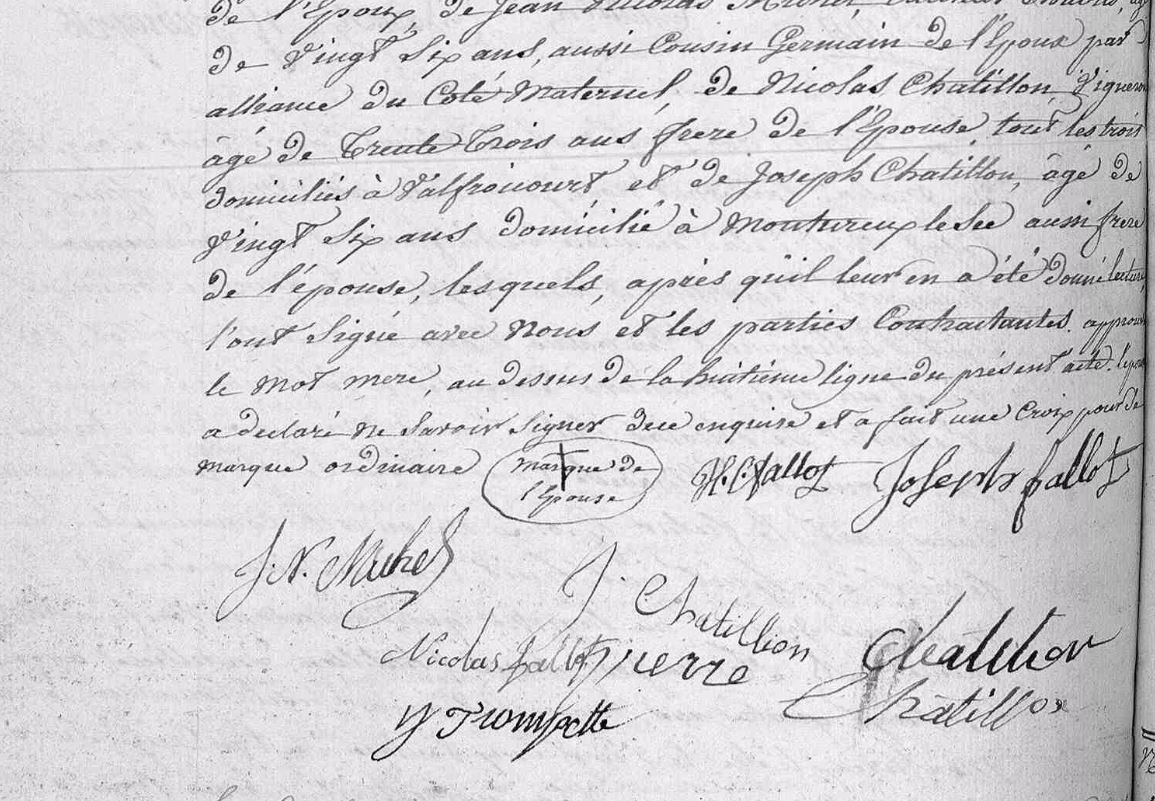 de l'Epoux, de Jean Nicolas Michel
de Vingt Six ans, aussi Cousin Germain de l'Epoux par
alliance du Coté Maternel, de Nicolas Chatillon, Vigneron
âgé de Trente Trois ans frere de l'Epouse tout les trois
domiciliés à Valfroicourt et de Joseph Chatillon, âgé de
Vingt Six ans domicilié à Montureux le Sec aussi frere
de l'épouse, lesquels, après qu'il leur en a été donné lecture,
l'ont Signé avec Nous et les parties Contractantes. approuvé
le mot mere, au dessus de la huitieme ligne du présent acte. l'epouse
a declaré ne Savoir Signer de ce enquise et a fait une Croix pour Sa
marque ordinaire marque de l'Epouse H. C. Fallot Joseph fallot
J. N. Michel
J. Chatillion
Nicolas fallot pierre Chatillion
Chatillon
N Trompette